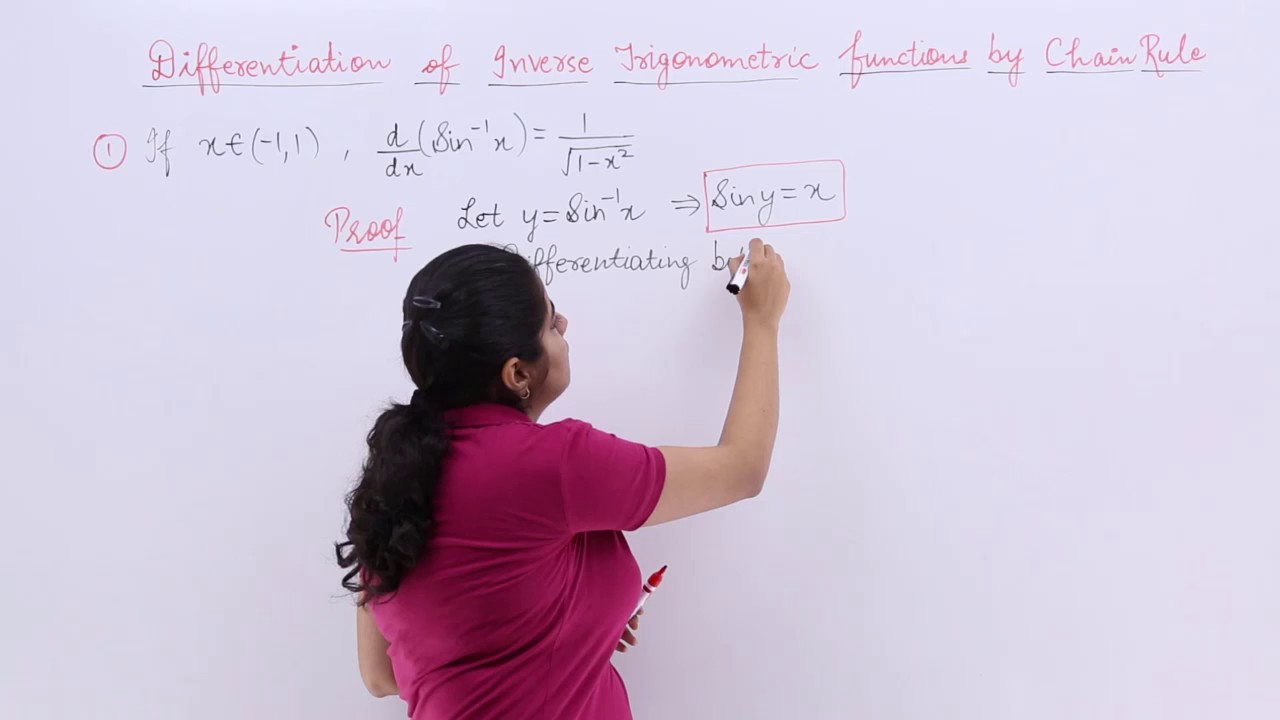 Differentiation of Inverse Trigonometric functions by Chain Rule
① If x∈(-1,1) , d/dx (Sin⁻¹x) = 1/√(1-x²)
Proof Let y = Sin⁻¹x ⇒ Sin y = x
Differentiating